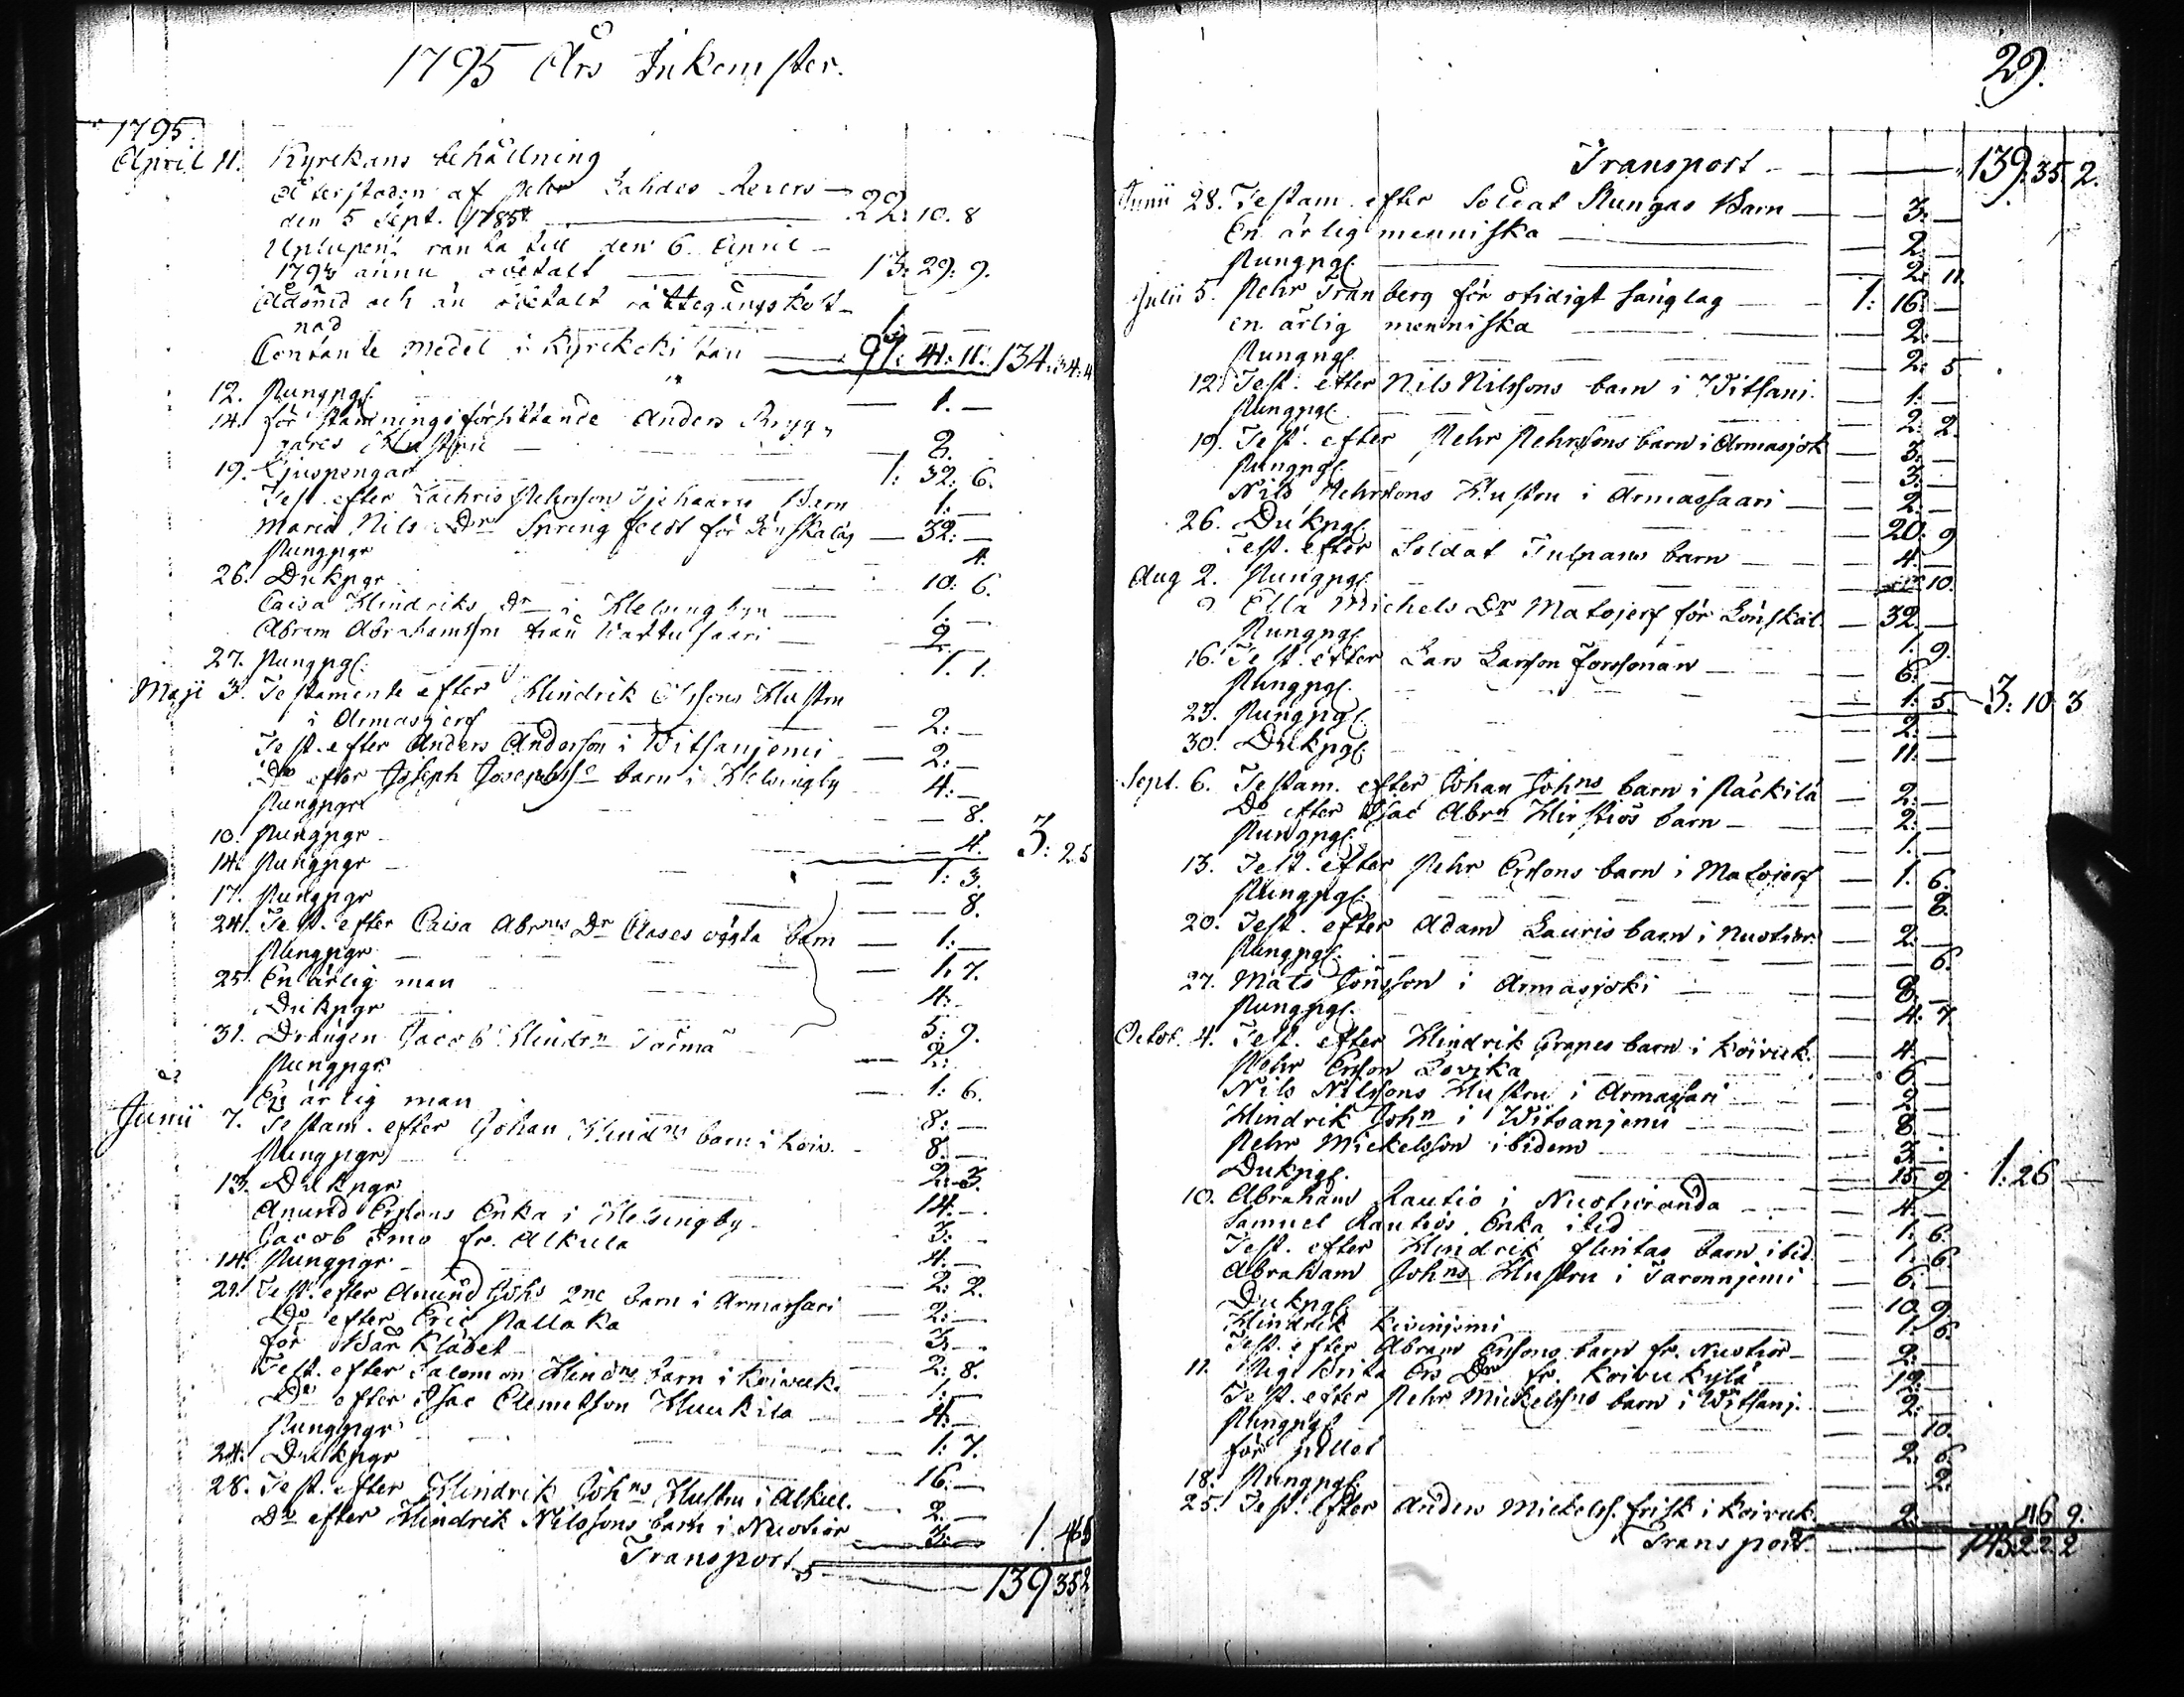 1795 Års Inkomster.
1795.
April 11. Kyrckans behållning
Återstoden af Peter Lahdes Revers —
den 5 Sept. 1785 — 22: 10. 8
Uplupen ränta till den 6 April —
1793 ännu obetalt — 13: 29: 9.
Ådömd och än obetalt rättegångskost-
nad — 1. — —
Contante medel i Kyrckokistan — 97: 41: 11. 134: 34: 4
12. Pungpgr — 1. —
14. för stämningsförsittande Anders Brygg-
gares Hustru — 2.
19. Ljuspengar — 1: 32: 6.
Test. efter Zachris Petersson Barn — 1: —
Maria Nils Dr Springfeldt för Lönskaläg — 32: —
Pungpgr — 4.
26. Dukpgr — 10: 6.
Caisa Hindriks Dr i Helsingbyn — 1: —
Abram Abrahamsson från Wattusaari — 2. —
27. Pungpgr. — 1. 1.
Maji 3. Testamente efter Hindrik Olssons Hustru
i Armasjerf — 2: —
Test. efter Anders Andersson i Witsanjemi — 2: —
Do efter Joseph Josephss barn i Helsingby — 4: —
Pungpgr — 8.
10. Pungpgr — 4. 3: 25
14. Pungpgr — 1: 3.
17. Pungpgr — 8.
24. Test. efter Caisa Abrms Dr Clases oägta barn — 1: —
Pungpgr — 1. 7.
25. En ärlig man — 4: —
Dukpgr — 5: 9.
31. Drängen Jacob Hindrn — 2:
Pungpgr — 1: 6.
En ärlig man — 8: —
Junii 7. Testam. efter Johan Hindrs barn i Koiv. — 8: —
Pungpgr — 2: 3.
13. Dukpgr — 14. —
Anund Ersons Enka i Helsingby — 3: —
Jacob Imo fr. Alkula — 4. —
14. Pungpgr — 2: 2.
21. Test. efter Anund Johs barn i Armassari — 2: —
Do efter Eric Pallaka — 3. —
för Bårklädet — 2: 8.
Test. efter Salomon Hindrs barn i Koivuk. — 1. —
Do efter Isac Clemetsson Kuukila — 4: —
Pungpgr — 1: 7.
24. Dukpgr — 16: —
28. Test. efter Hindrik Johns Hustru i Alkul. — 2. —
Do efter Hindrik Nilssons barn i Nuotior — 3: — 1.
Transport — 139 35 2
29.
Transport — 139. 35. 2.
Junii 28. Testam. efter Soldat Pungas Barn — 3. —
En ärlig menniska — 2. —
Pungpgr — 2. 11.
Julii 5. Pehr Tranberg för otidigt sänglag — 1: 16: —
en ärlig menniska — 2: —
Pungpgr — 2: 5
12. Test. efter Nils Nilssons barn i Witsanj. — 1: —
Pungpgr — 2: 2.
19. Test. efter Pehr Pehrssons barn i Armasjok — 3: —
Pungpgr — 3: —
Nils Pehrsons Hustru i Armassaari — 2. —
26. Dukpgr. — 20: 9
Test. efter Soldat Tulpans barn — 4. —
Aug 2. Pungpgr — 10.
9 Ella Michels Dr Matojerf för Lönskal. — 32. —
Pungpgr — 1. 9.
16. Test. efter Lars Larsson Forssonan — 6: —
Pungpgr. — 1. 5. 3: 10. 3
23. Pungpgr. — 2: —
30. Dukpgr. — 11: —
Sept. 6. Testam. efter Johan Johns barn i Päckilä — 2: —
Do efter Isac Abrn Hirstiös barn — 2: —
Pungpgr. — 1. —
13. Test. efter Pehr Ersons barn i Matojerf — 1. 6.
Pungpgr. — 8.
20. Test. efter Adam Lauris barn i Nuotior. — 2: —
Pungpgr. — 6.
27. Mats Jönsson i Armasjoki — 8. —
Pungpgr. — 4. 7.
Octob. 4. Test. efter Hindrik Grapes barn i Koivuk. — 4. —
Pehr Ersson Lovika — 6. —
Nils Nilssons Hustru i Armassari — 2. —
Hindrik John i Witsanjemi — 8. —
Pehr Mickelsson ibidem — 3. —
Dukpgr. — 15. 9. 1: 26 —
10. Abraham Rautio i Nuotioranda — 4. —
Samuel Rautios Enka ibid — 1. 6.
Test. efter Hindrik Flintas barn ibid. — 1. 6.
Abraham Johns Hustru i Taroniemi — 6. —
Dukpgr. — 10. 9.
Hindrik Kivinjemi — 1. 6.
Test. efter Abram Ersons barn fr. Nuotior — 2: —
11. Pig. Brita Ers Dr fr. Koivukylä — 12: —
Test. efter Pehr Mickelssns barn i Witsanj. — 2. —
Pungpgr — 10.
för pället — 2. 6.
18. Pungpgr. — 2.
25. Test. efter Anders Mickelss. Frisk i Koivuk. — 2. — 46 9.
Transport. — 145 22 2